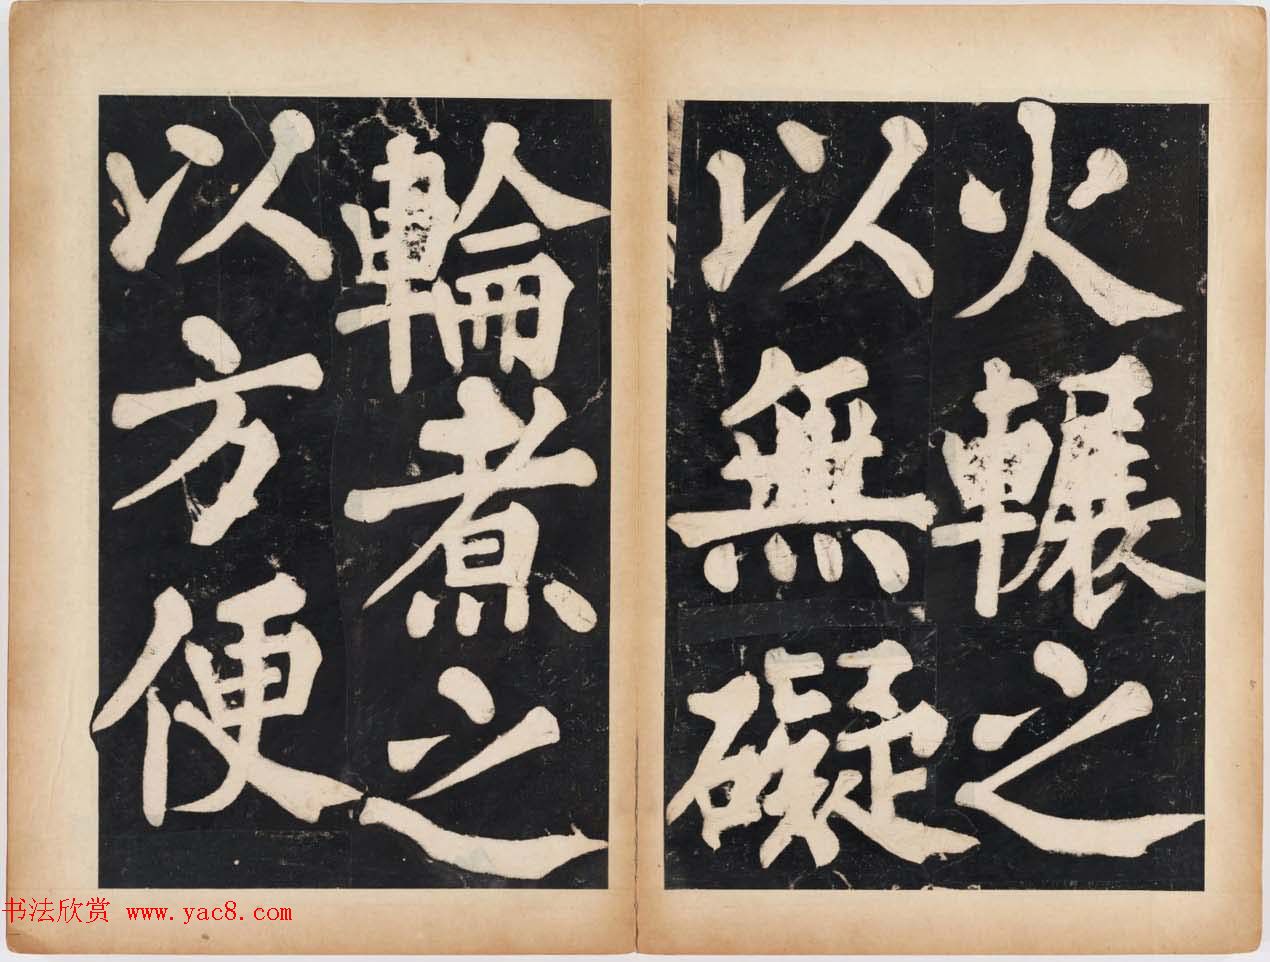 火輾之
以無礙
輪煮之
以方便
书法欣赏 www.yac8.com